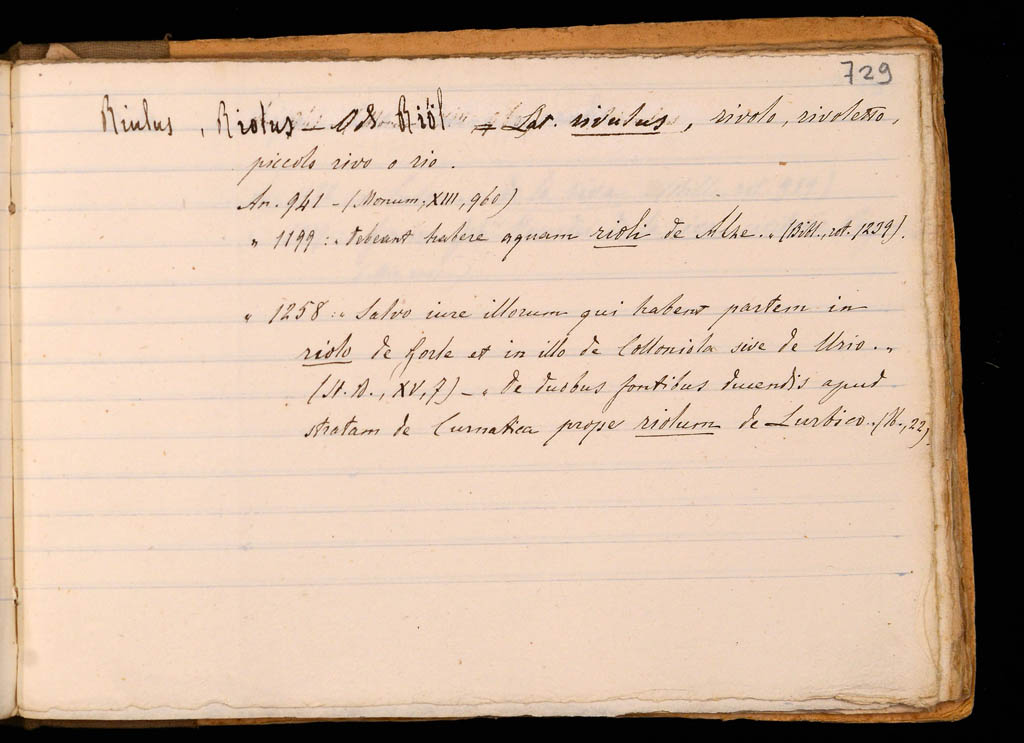 729
Riulus, Riolus – Od. Riöl = Lat. rivulus, rivolo, rivoletto,
piccolo rivo o rio.
An. 941 – (Monum., XIII, 960)
„ 1199 : „ debeant habere aquam rioli de Alhe. „ (Bibl., rot. 1239).
„ 1258 : „ Salvo iure illorum qui habent partem in
riolo de forte et in illo de Colloniola sive de Urio. „
(St. B., XV, 7) – „ de duobus fontibus ducendis apud
stratam de Curnatica prope riolum de Lurbico. „ (Ib., 22)